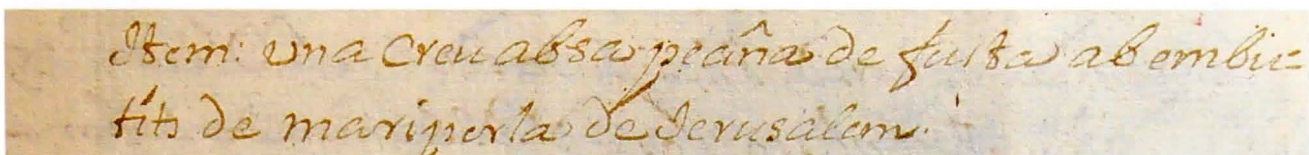 Item: una Creu ab sa peaña de fusta ab embu=
tits de mariperla de Jerusalem.